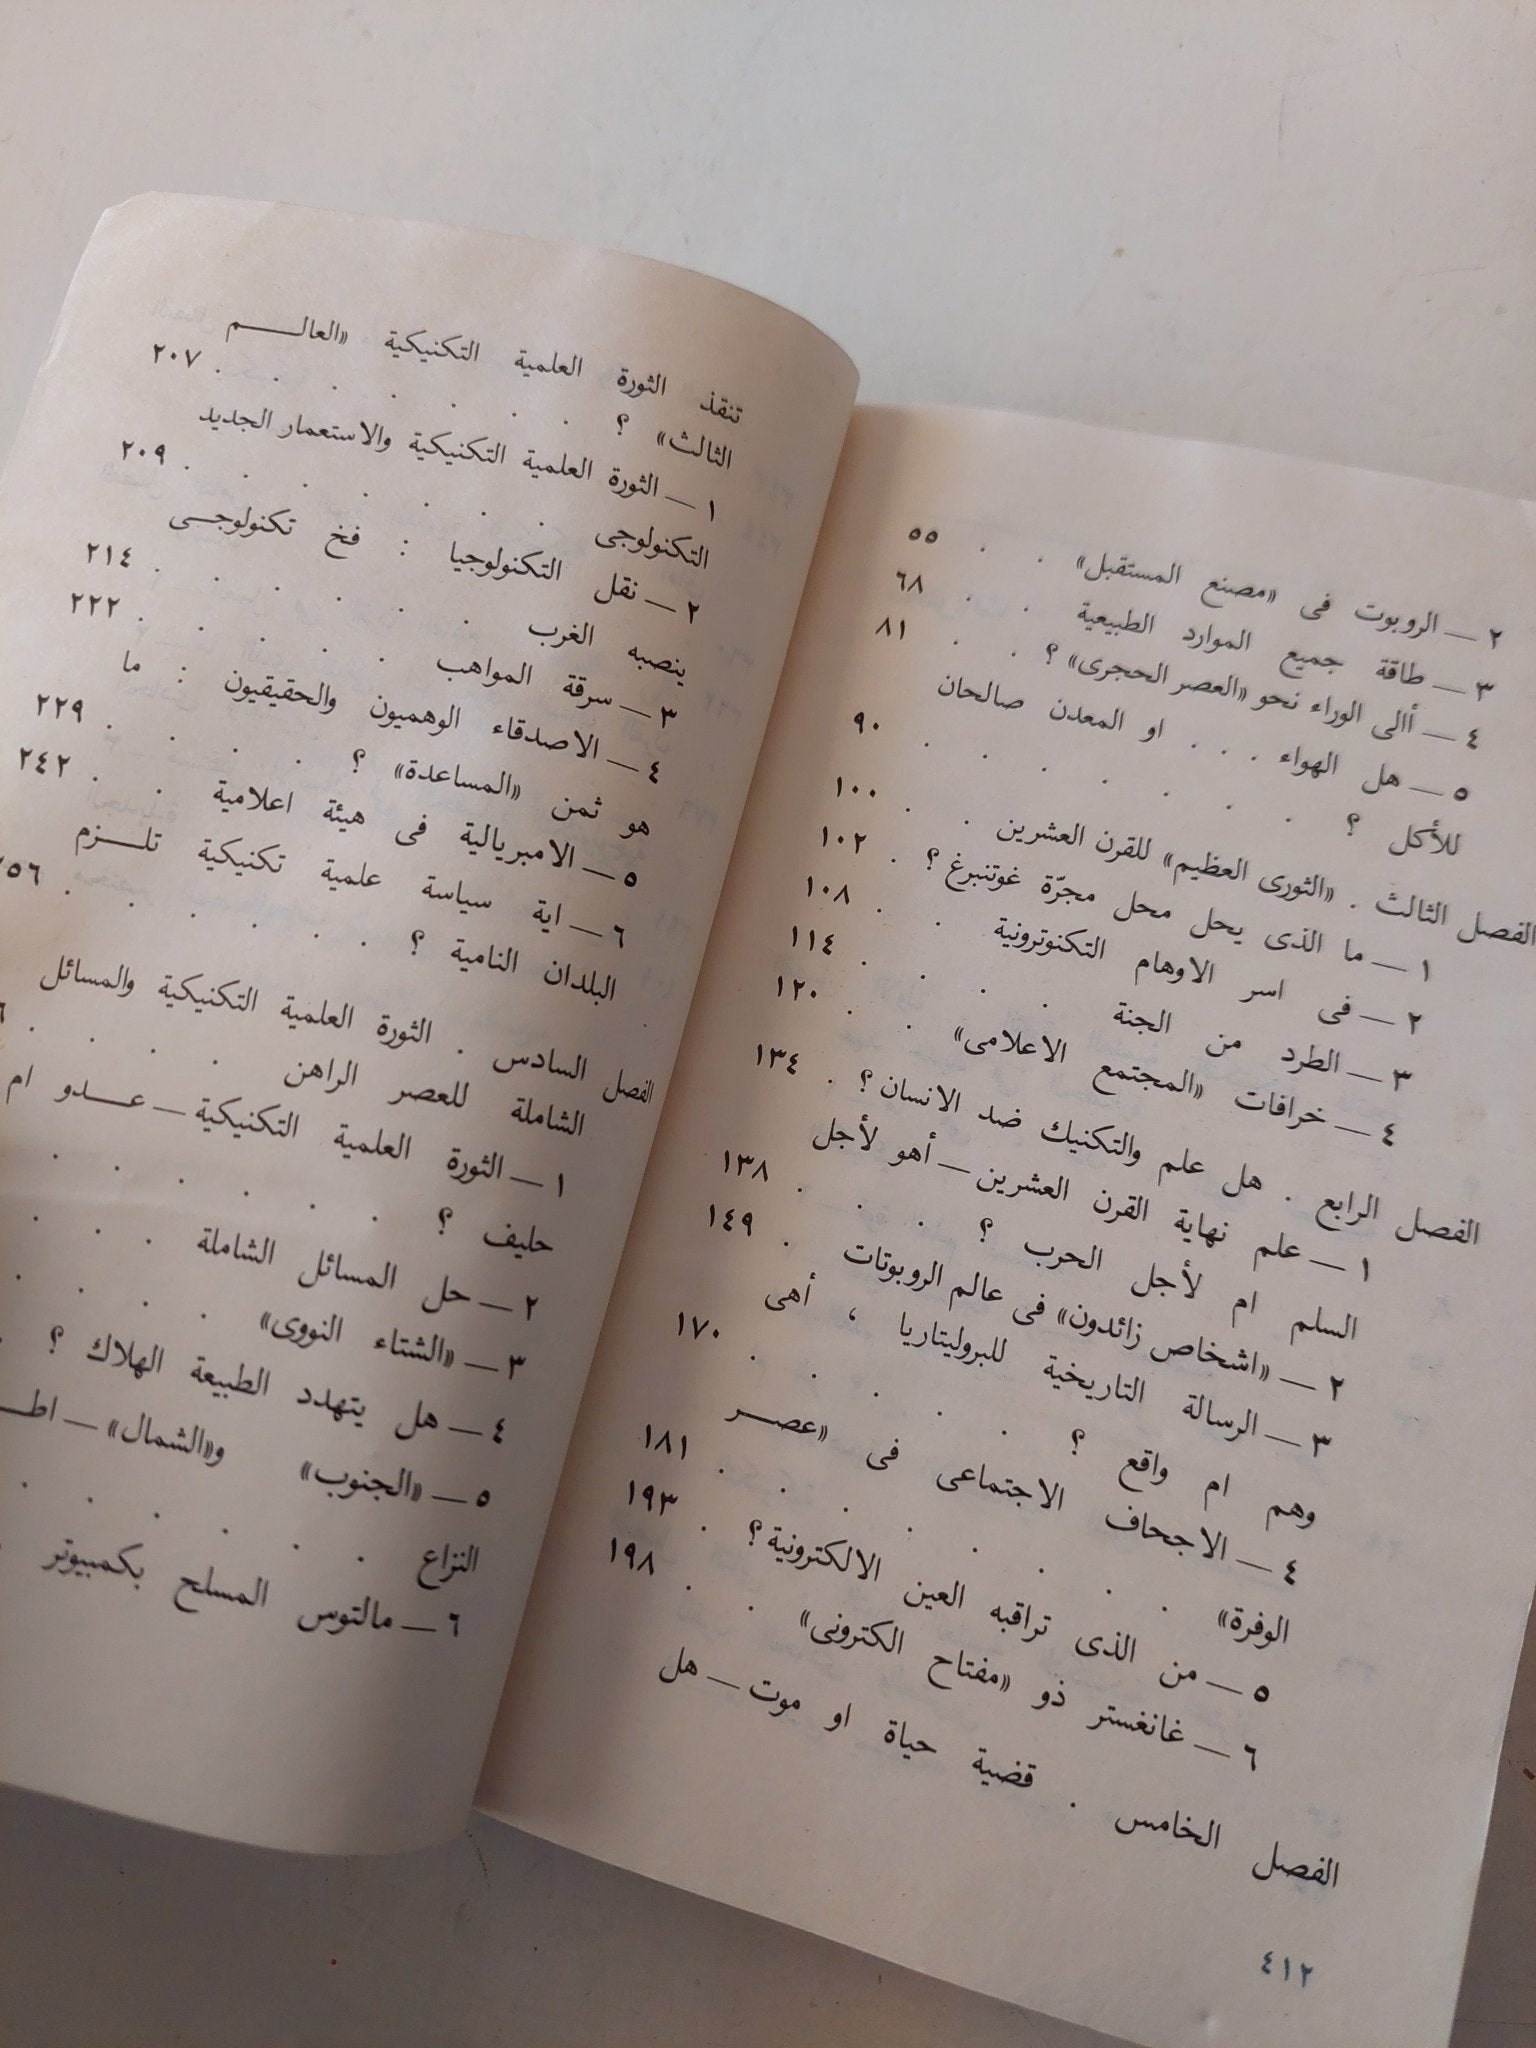 ٢ — الروبوت فى «مصنع المستقبل» . . ٥٥
٣ — طاقة جميع الموارد الطبيعية . . ٦٨
٤ — أالى الوراء نحو «العصر الحجرى» ؟ . . ٨١
٥ — هل الهواء . . . او المعدن صالحان
للأكل ؟ . . . . . ٩٠
الفصل الثالث . «الثورى العظيم» للقرن العشرين . . ١٠٠
١ — ما الذى يحل محل مجرّة غوتنبرغ ؟ . ١٠٢
٢ — فى اسر الاوهام التكنوترونية . . ١٠٨
٣ — الطرد من الجنة . . . . ١١٤
٤ — خرافات «المجتمع الاعلامى» . . ١٢٠
الفصل الرابع . هل علم والتكنيك ضد الانسان ؟ . ١٣٤
١ — علم نهاية القرن العشرين — أهو لأجل
السلم ام لأجل الحرب ؟ . . . ١٣٨
٢ — «اشخاص زائدون» فى عالم الروبوتات . ١٤٩
٣ — الرسالة التاريخية للبروليتاريا ، أهى
وهم ام واقع ؟ . . . . . ١٧٠
٤ — الاجحاف الاجتماعى فى «عصر
الوفرة» . . . . . . ١٨١
٥ — من الذى تراقبه العين الالكترونية ؟ . ١٩٣
٦ — غانغستر ذو «مفتاح الكترونى» . . ١٩٨
الفصل الخامس . قضية حياة او موت — هل
٤١٢
تنقذ الثورة العلمية التكنيكية «العالم
الثالث» ؟ . . . . . . ٢٠٧
١ — الثورة العلمية التكنيكية والاستعمار الجديد
التكنولوجى . . . . . . ٢٠٩
٢ — نقل التكنولوجيا : فخ تكنولوجى
ينصبه الغرب . . . . . ٢١٤
٣ — سرقة المواهب . . . . ٢٢٢
٤ — الاصدقاء الوهميون والحقيقيون : ما
هو ثمن «المساعدة» ؟ . . . ٢٢٩
٥ — الامبريالية فى هيئة اعلامية . . ٢٤٢
٦ — اية سياسة علمية تكنيكية تلزم
البلدان النامية ؟ . . . . .
الفصل السادس . الثورة العلمية التكنيكية والمسائل
الشاملة للعصر الراهن . . . .
١ — الثورة العلمية التكنيكية — عدو ام
حليف ؟ . . . . .
٢ — حل المسائل الشاملة . . .
٣ — «الشتاء النووى» . . . .
٤ — هل يتهدد الطبيعة الهلاك ؟ .
٥ — «الجنوب» و«الشمال» —
النزاع . . . . .
٦ — مالتوس المسلح بكمبيوتر